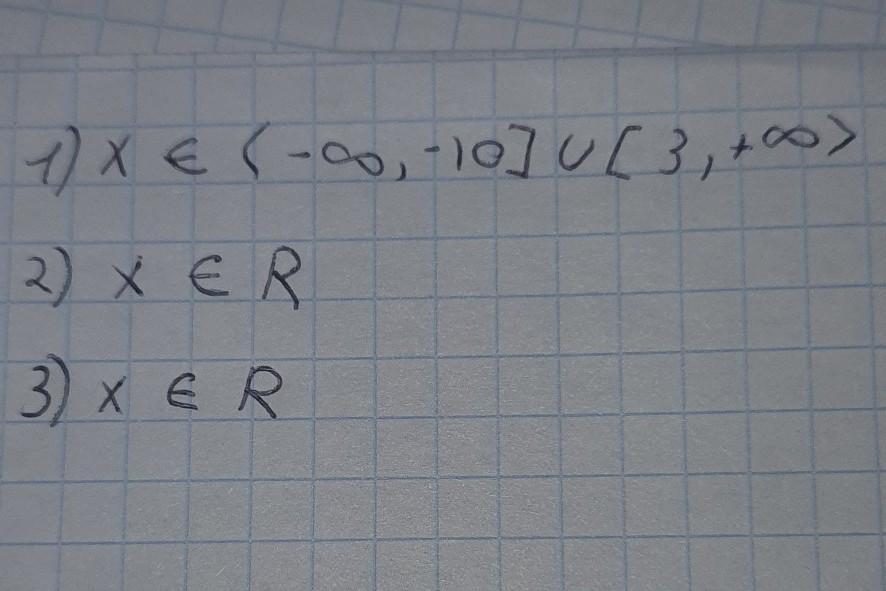 1) x ∈ ⟨-∞, -10] ∪ [3, +∞⟩
2) x ∈ R
3) x ∈ R